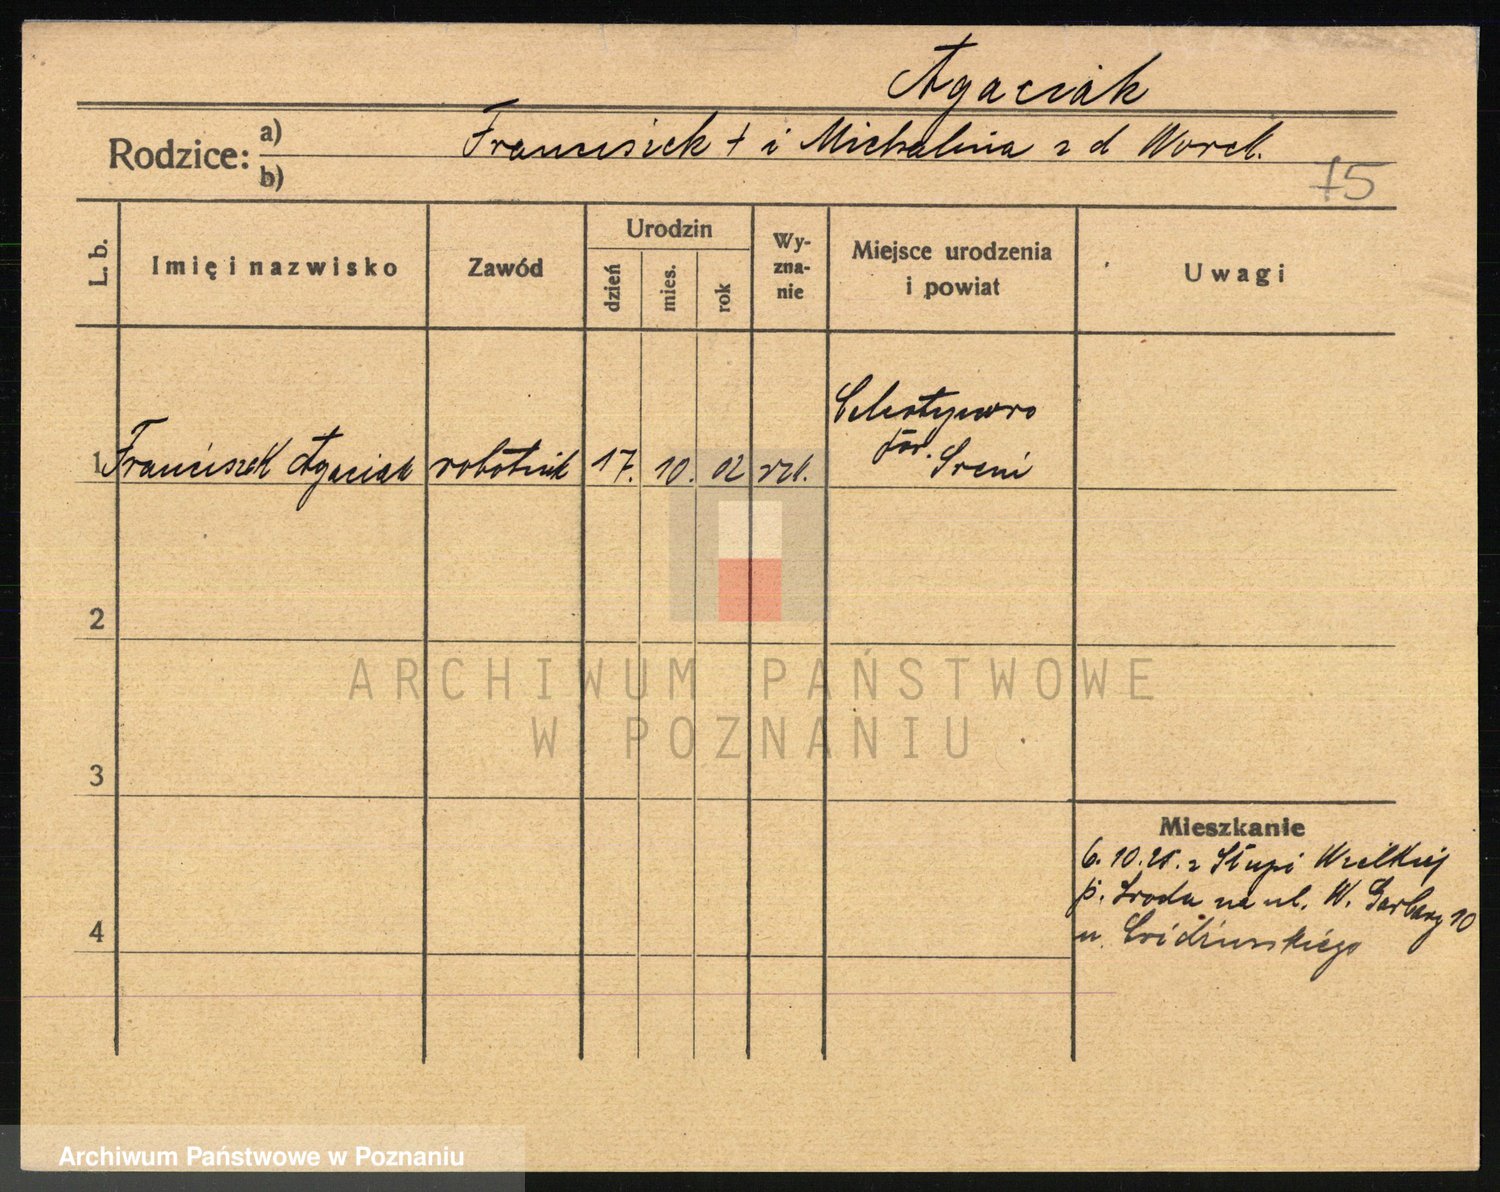 Agaciak
Rodzice: a) Franciszek † i Michalina z d Worch.
b)
75
L. b. Imię i nazwisko Zawód Urodzin dzień mies. rok Wyznanie Miejsce urodzenia i powiat Uwagi
Celestynowo
pow. Śrem
1 Franciszek Agaciak robotnik 17. 10. 02 rzk.
2
ARCHIWUM PAŃSTWOWE
W POZNANIU
3
Mieszkanie
6. 10. z Słupi Wielkiej
p. Środa na ul. W. Garbary 10
u
4
Archiwum Państwowe w Poznaniu